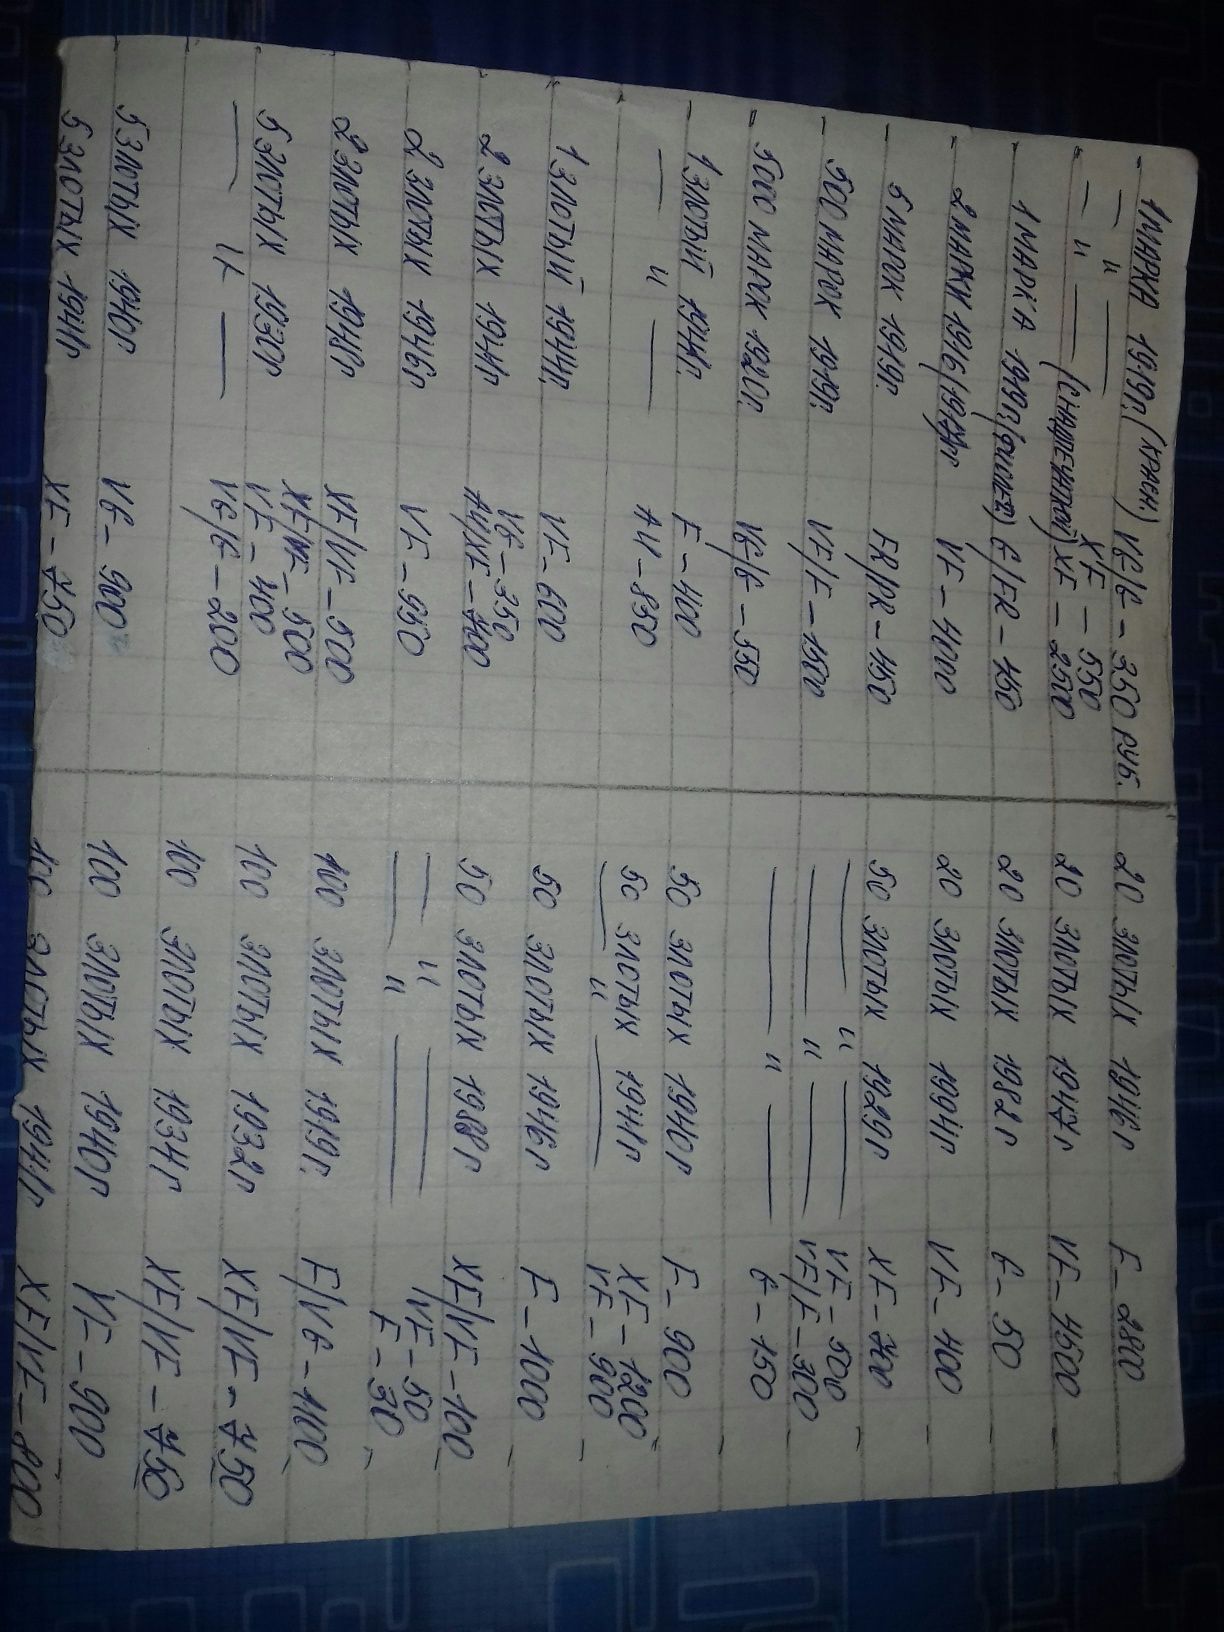 1 МАРКА 1919г. (красн.) VG/G – 350 руб.
— и — XF – 550
— и — (с надпечаткой) XF – 2500
1 МАРКА 1919г. G/FR – 150
2 МАРКИ 1916 VF – 4000
5 МАРОК 1919г. FR/PR – 150
500 МАРОК 1919г. VF/F – 1500
5000 МАРОК 1920г. VG/G – 550
1 злотый 1944г. F – 400
— и — AU – 850
1 злотый 1944г. VF – 600
2 злотых 1944г VG – 350
AU/XF – 1400
2 злотых 1946г VF – 950
2 злотых 1948г XF/VF – 500
5 злотых 1930г XF/VF – 500
VF – 400
— и — VG/G – 200
5 злотых 1940г VG – 900
5 злотых 1941г XF – 750
20 злотых 1946г F – 2800
20 злотых 1947г VF – 4500
20 злотых 1982г G – 50
20 злотых 1994г VF – 400
50 злотых 1929г XF – 700
— и — VF – 500
— и — VF/F – 300
— и — G – 150
50 злотых 1940г F – 900
50 злотых 1941г XF – 1200
— и — VF – 900
50 злотых 1946г F – 1000
50 злотых 1988г XF/VF – 100
— и — VF – 50
— и — F – 30
100 злотых 1919г. F/VG – 1100
100 злотых 1932г XF/VF – 750
100 злотых 1934г XF/VF – 750
100 злотых 1940г VF – 900
100 злотых 1941г XF/VF – 800